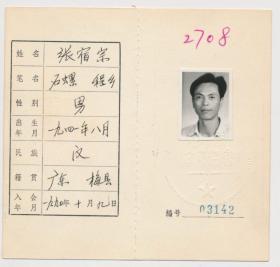 2708
姓名 张宿宗
笔名 石螺 程乡
性别 男
出生年月 一九四一年八月
民族 汉
籍贯 广东 梅县
入会年月 一九九〇年十月九日
编号 03142